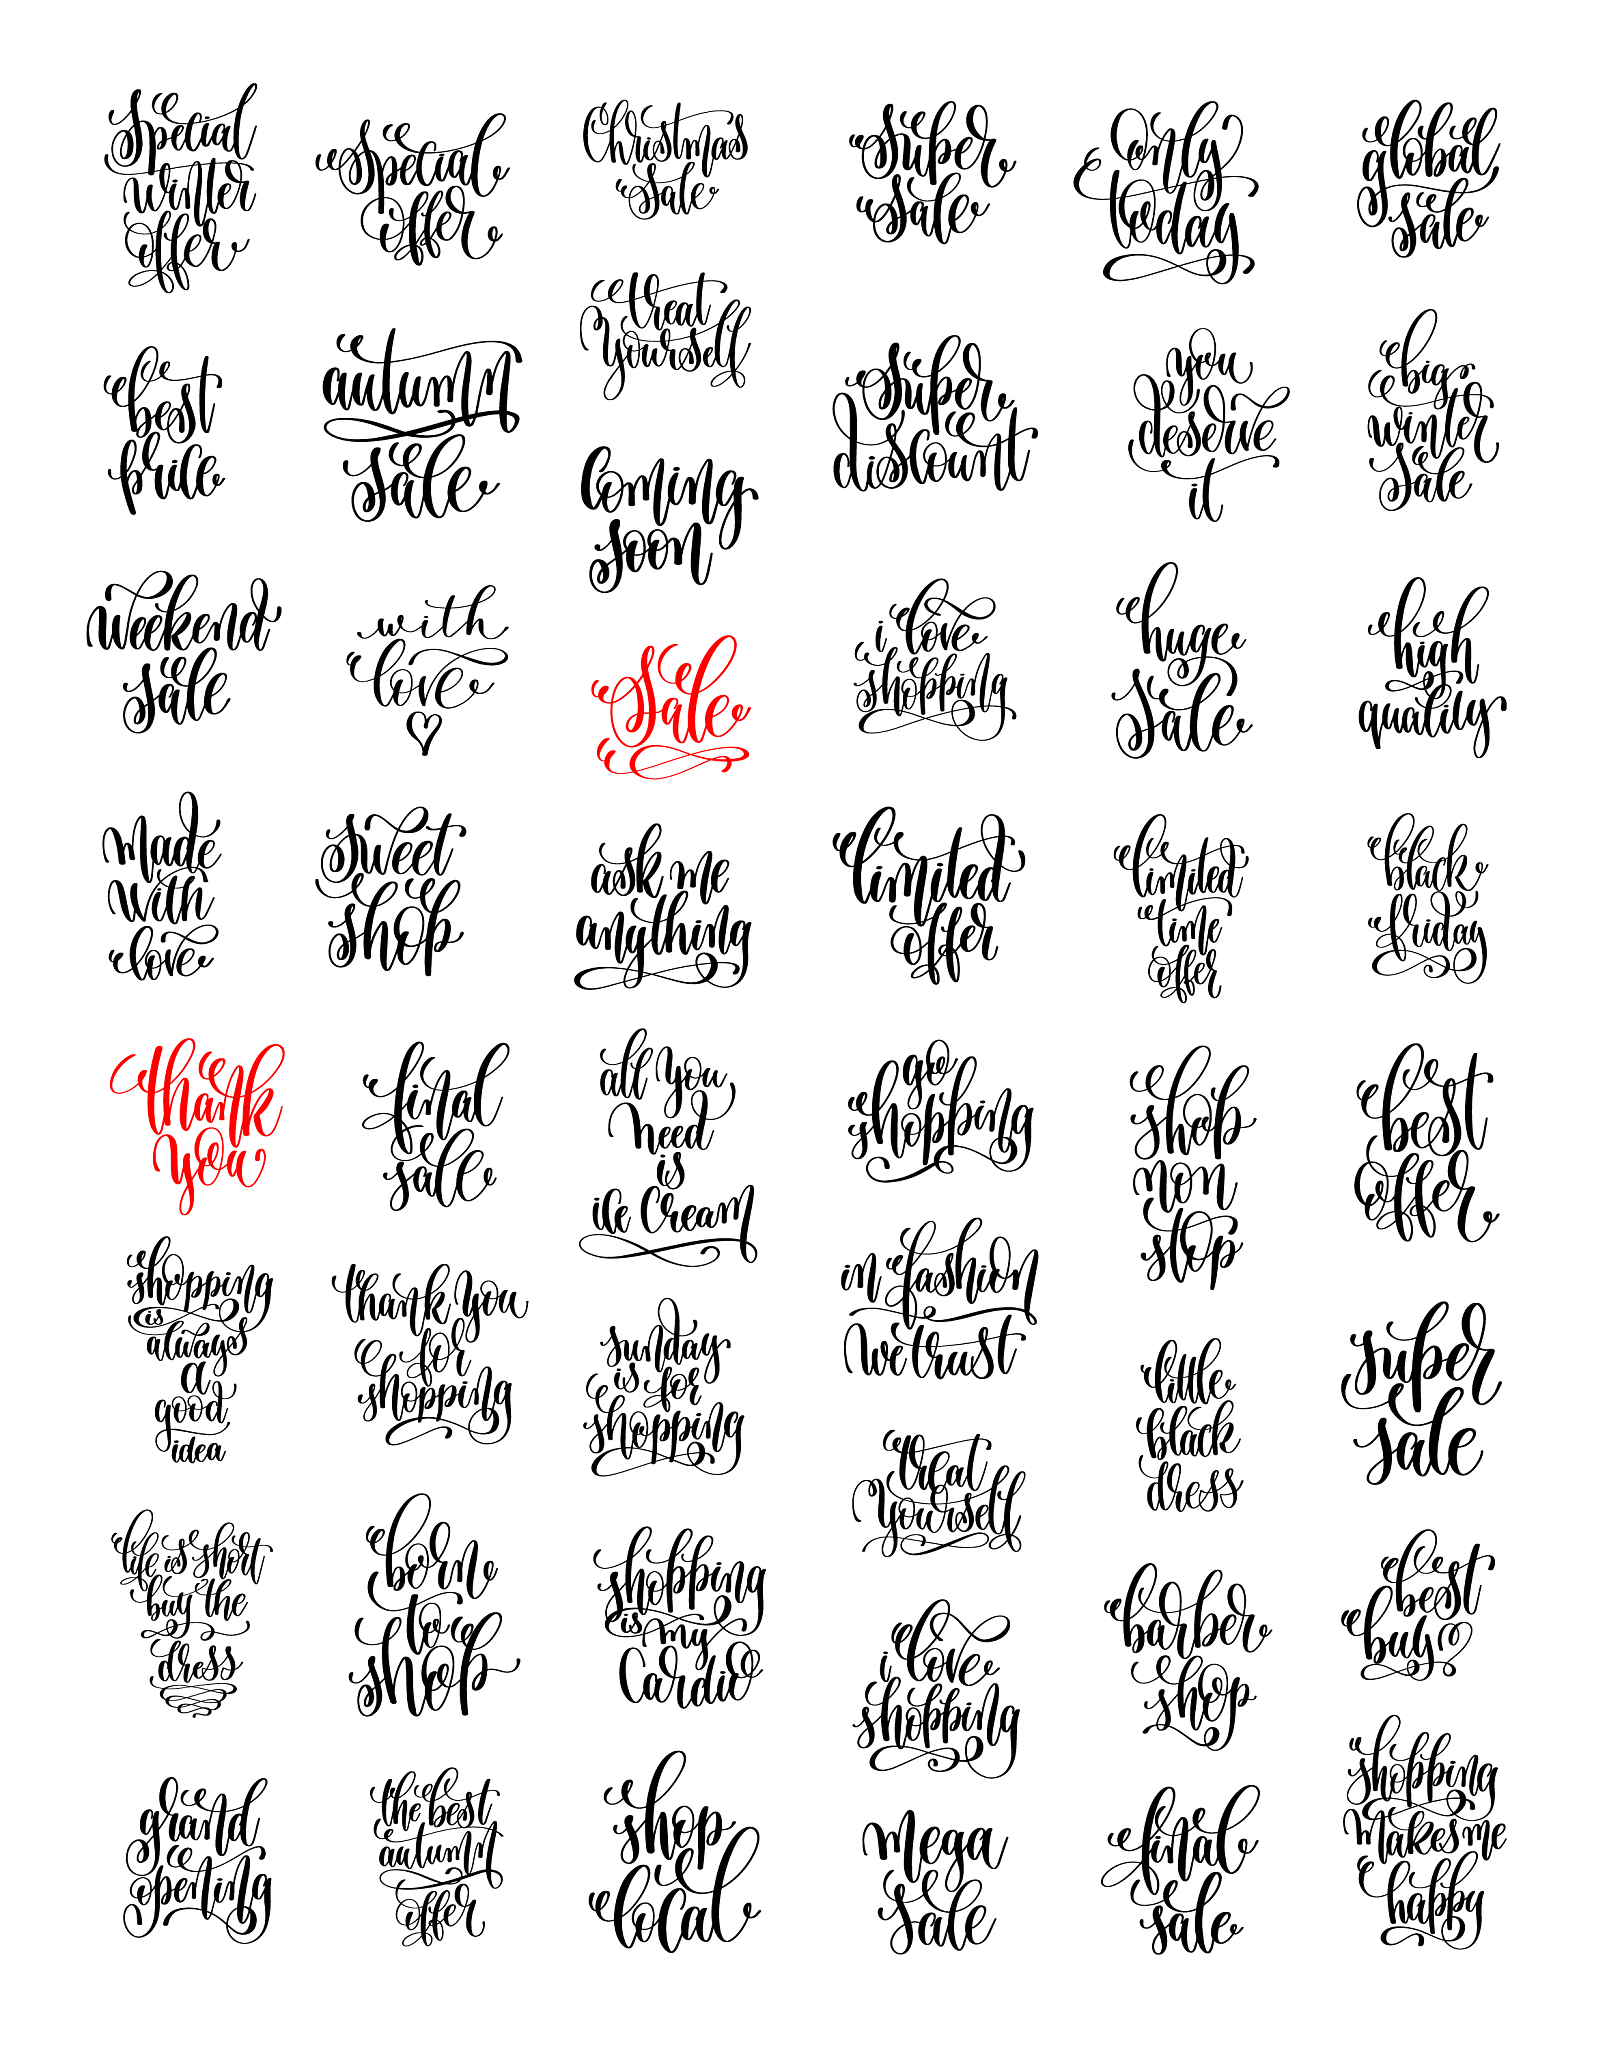 Special
winter
offer
Special
offer
Christmas
Sale
Super
Sale
Only
today
global
sale
treat
yourself
best
price
autumn
sale
Coming
soon
Super
discount
you
deserve
it
big
winter
Sale
weekend
sale
with
love
Sale
i love
shopping
huge
Sale
high
quality
made
with
love
sweet
shop
ask me
anything
limited
offer
limited
time
offer
black
friday
thank
you
final
sale
all you
need
is
ice Cream
go
shopping
shop
non
stop
best
offer
shopping
is
always
a
good
idea
thank you
for
shopping
sunday
is for
shopping
in fashion
we trust
little
black
dress
super
sale
treat
yourself
life is short
buy the
dress
born
to
shop
shopping
is my
Cardio
i love
shopping
barber
shop
best
buy
grand
opening
the best
autumn
offer
shop
local
mega
sale
final
sale
shopping
makes me
happy